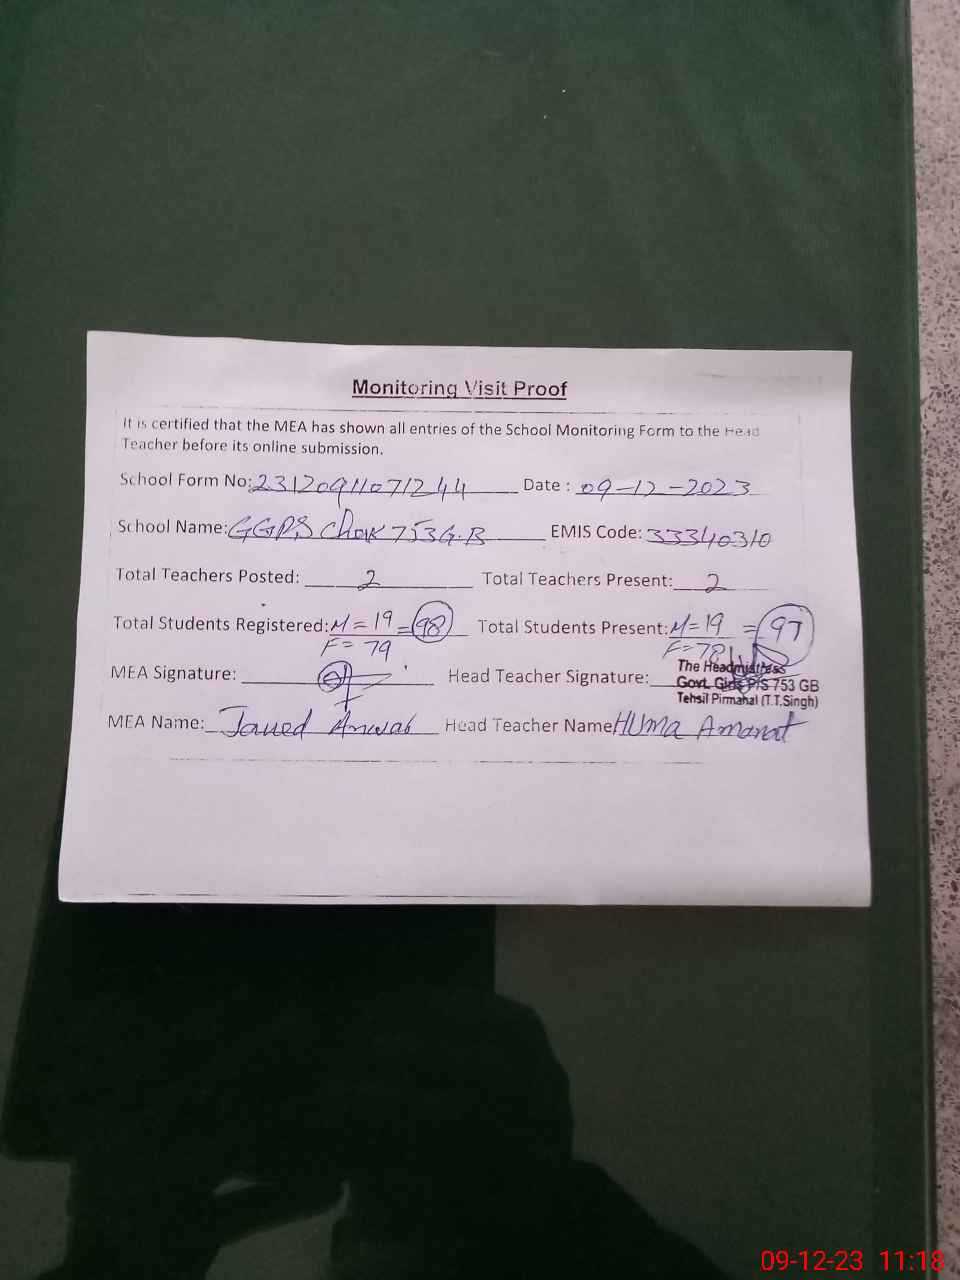 Monitoring Visit Proof
It is certified that the MEA has shown all entries of the School Monitoring Form to the Head
Teacher before its online submission.
School Form No: 23120911071244 Date : 09-12-2023
School Name: GGPS Chak 753 G.B EMIS Code: 33340310
Total Teachers Posted: 2 Total Teachers Present: 2
Total Students Registered: M = 19 = 98 Total Students Present: M = 19 = 97
F = 79 F = 78
MEA Signature: Head Teacher Signature:
The Headmistress
Govt. Girls P/S 753 GB
Tehsil Pirmahal (T.T.Singh)
MEA Name: Javed Anwar Head Teacher Name Huma Amanat
09-12-23 11:18